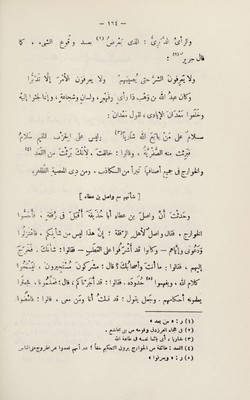 — ١٦٤ —
والرأىُ الدَّبَرِىُّ : الذى يَعْرِضُ (١) بعد وقوع الشىء . كما
قال جرير (٢) :
ولا يعرفونَ الشرَّ حتى يُصيبَهمْ ولا يعرفونَ الأمرَ إلَّا تَدَبُّرا
وكان عبدُ الله بن وَهْب ذا رأىٍ وفهمٍ، ولسانٍ وشجاعةٍ، وإنما لجئوا إليه
وخلَعوا مَعْدَانَ الإيادىَّ، لقولِ معدانَ :
سلامٌ على مَنْ بايَعَ اللهَ شاريًا (٣) وليس على الحِزْبِ المُقيمِ سَلامُ
فبَرِئَتْ منه الصُّفْرِيَّةُ، وقالوا : خالَفْتَ، لأنك بَرِئْتَ من القَعَدِ (٤)
والخوارجُ فى جميع أصنافِها تَبْرَأُ من الكاذب، ومن ذى المعصيةِ الظاهرة.
[ شأنهم مع واصل بن عطاء ]
وحُدِّثْتُ أنَّ واصلَ بن عطاء أبا حُذَيْفَةَ أقبل فى رُفْقةٍ، فأحسُّوا
الخوارجَ، فقال واصلٌ لأهلِ الرفقة : إنَّ هذا ليس من شأنِكم، فاعتزِلوا
ودَعُونى وإيَّاهم — وكانوا قد أشرَفوا على العَطَبِ — فقالوا : شأنَك. فخرَج
إليهم، فقالوا : ما أنتَ وأصحابُك؟ قال : مشركون مُسْتَجِيرون، ليسمعوا
كلامَ الله، ويفهموا (٥) حدودَه. فقالوا : قد أجَرْناكم، قال : فعلِّمونا. فجعلوا
يعلِّمونه أحكامَهم، وجعل يقول : قد قبلتُ أنا ومَن معى. قالوا : فامضُوا
(١) ر : « من بعد »
(٢) فى هجاء الفرزدق وقومه من بنى مجاشع .
(٣) شاريا ، أى بائعا نفسه فى طاعة الله
(٥) ر : « ويعرفوا »